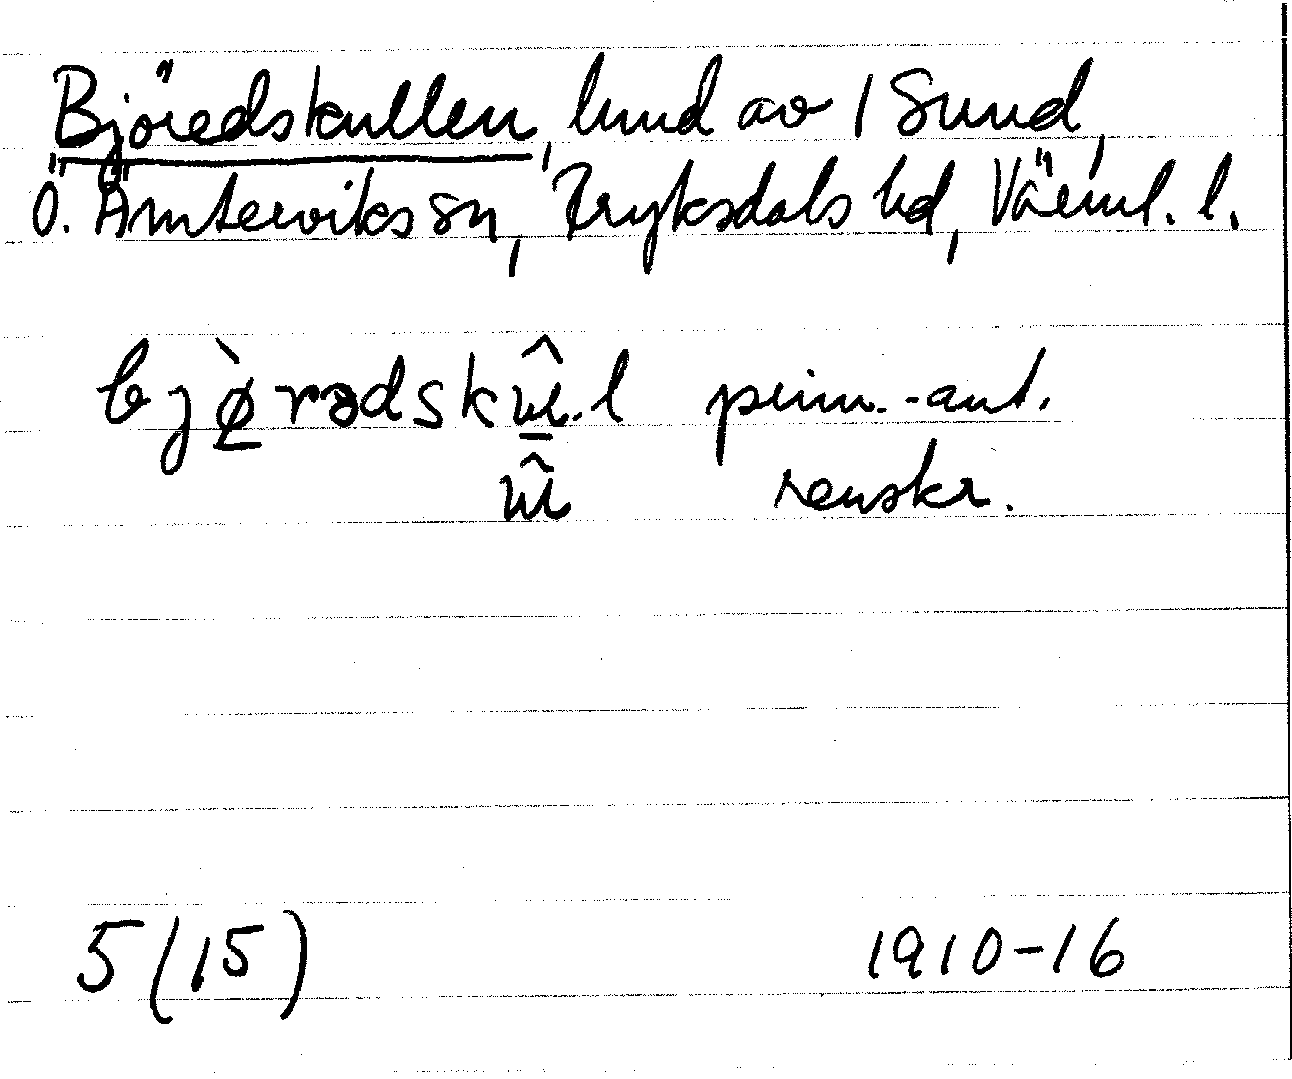 Björedskullen, lund av 1 Sund,
Ö. Ämterviks sn, Fryksdals hd, Värml. l.
prim.-ant.
renskr.
5(15) 1910-16